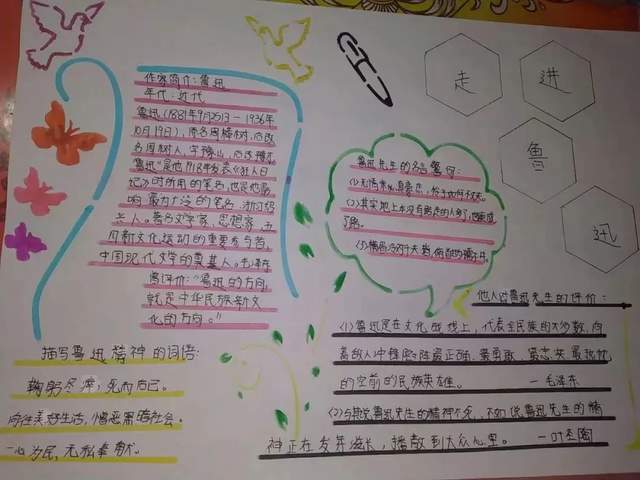 走 进
鲁
迅
作家简介：鲁迅
年代：近代
鲁迅（1881年9月25日－1936年
10月19日），原名周樟树，后改
名周树人，字豫山，后改豫才
鲁迅”是他1918年发表《狂人日
记》时所用的笔名，也是他影
响最为广泛的笔名，浙江绍
兴人。著名文学家、思想家，五
四新文化运动的重要参与者，
中国现代文学的奠基人。毛泽东
曾评价：“鲁迅的方向，
就是中华民族新文
化的方向。”
鲁迅先生的名言警句：
(2)其实地上本没有路走的人多了，也便成
了路。
描写鲁迅精神的词语：
鞠躬尽瘁，死而后已。
向往美好生活，憎恶黑暗社会。
一心为民，无私奉献。
他人对鲁迅先生的评价：
(1)鲁迅是在文化战线上，代表全民族的大多数，向
着敌人冲锋陷阵最正确、最勇敢、最坚决、最
的空前的民族英雄。 —毛泽东
(2)与其说鲁迅先生的精神不死，不如说鲁迅先生的精
神正在发芽滋长，播散到大众心里。 —叶圣陶